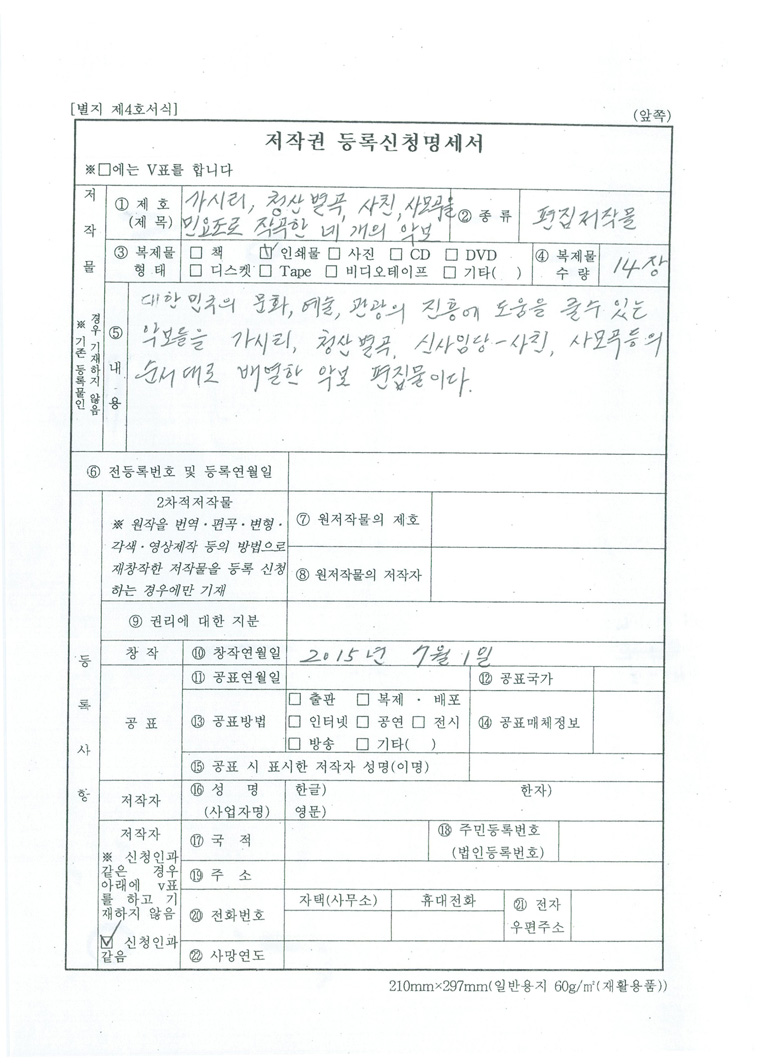 [별지 제4호서식]
(앞쪽)
저작권 등록신청명세서
※□에는 V표를 합니다
저작물
① 제 호
(제 목)
가시리, 청산별곡, 사친, 사모곡을
민요조로 작곡한 네 개의 악보
② 종 류
편집저작물
③ 복제물
형 태
□ 책 ☑ 인쇄물 □ 사진 □ CD □ DVD
□ 디스켓 □ Tape □ 비디오테이프 □ 기타( )
④ 복제물
수 량
14장
※ 기존 등록물인
경우 기재하지 않음
⑤ 내 용
대한민국의 문화, 예술, 관광의 진흥에 도움을 줄수 있는
악보들을 가시리, 청산별곡, 신사임당-사친, 사모곡등의
순서대로 배열한 악보 편집물이다.
⑥ 전등록번호 및 등록연월일
등록사항
2차적저작물
※ 원작을 번역·편곡·변형·
각색·영상제작 등의 방법으로
재창작한 저작물을 등록 신청
하는 경우에만 기재
⑦ 원저작물의 제호
⑧ 원저작물의 저작자
⑨ 권리에 대한 지분
창 작
⑩ 창작연월일
2015년 7월 1일
공 표
⑪ 공표연월일
⑫ 공표국가
⑬ 공표방법
□ 출판 □ 복제 · 배포
□ 인터넷 □ 공연 □ 전시
□ 방송 □ 기타( )
⑭ 공표매체정보
⑮ 공표 시 표시한 저작자 성명(이명)
저작자
⑯ 성 명
(사업자명)
한글) 한자)
영문)
저작자
※ 신청인과
같은 경우
아래에 v표
를 하고 기
재하지 않음
☑ 신청인과
같음
⑰ 국 적
⑱ 주민등록번호
(법인등록번호)
⑲ 주 소
⑳ 전화번호
자택(사무소) 휴대전화
㉑ 전자
우편주소
㉒ 사망연도
210mm×297mm(일반용지 60g/㎡(재활용품))